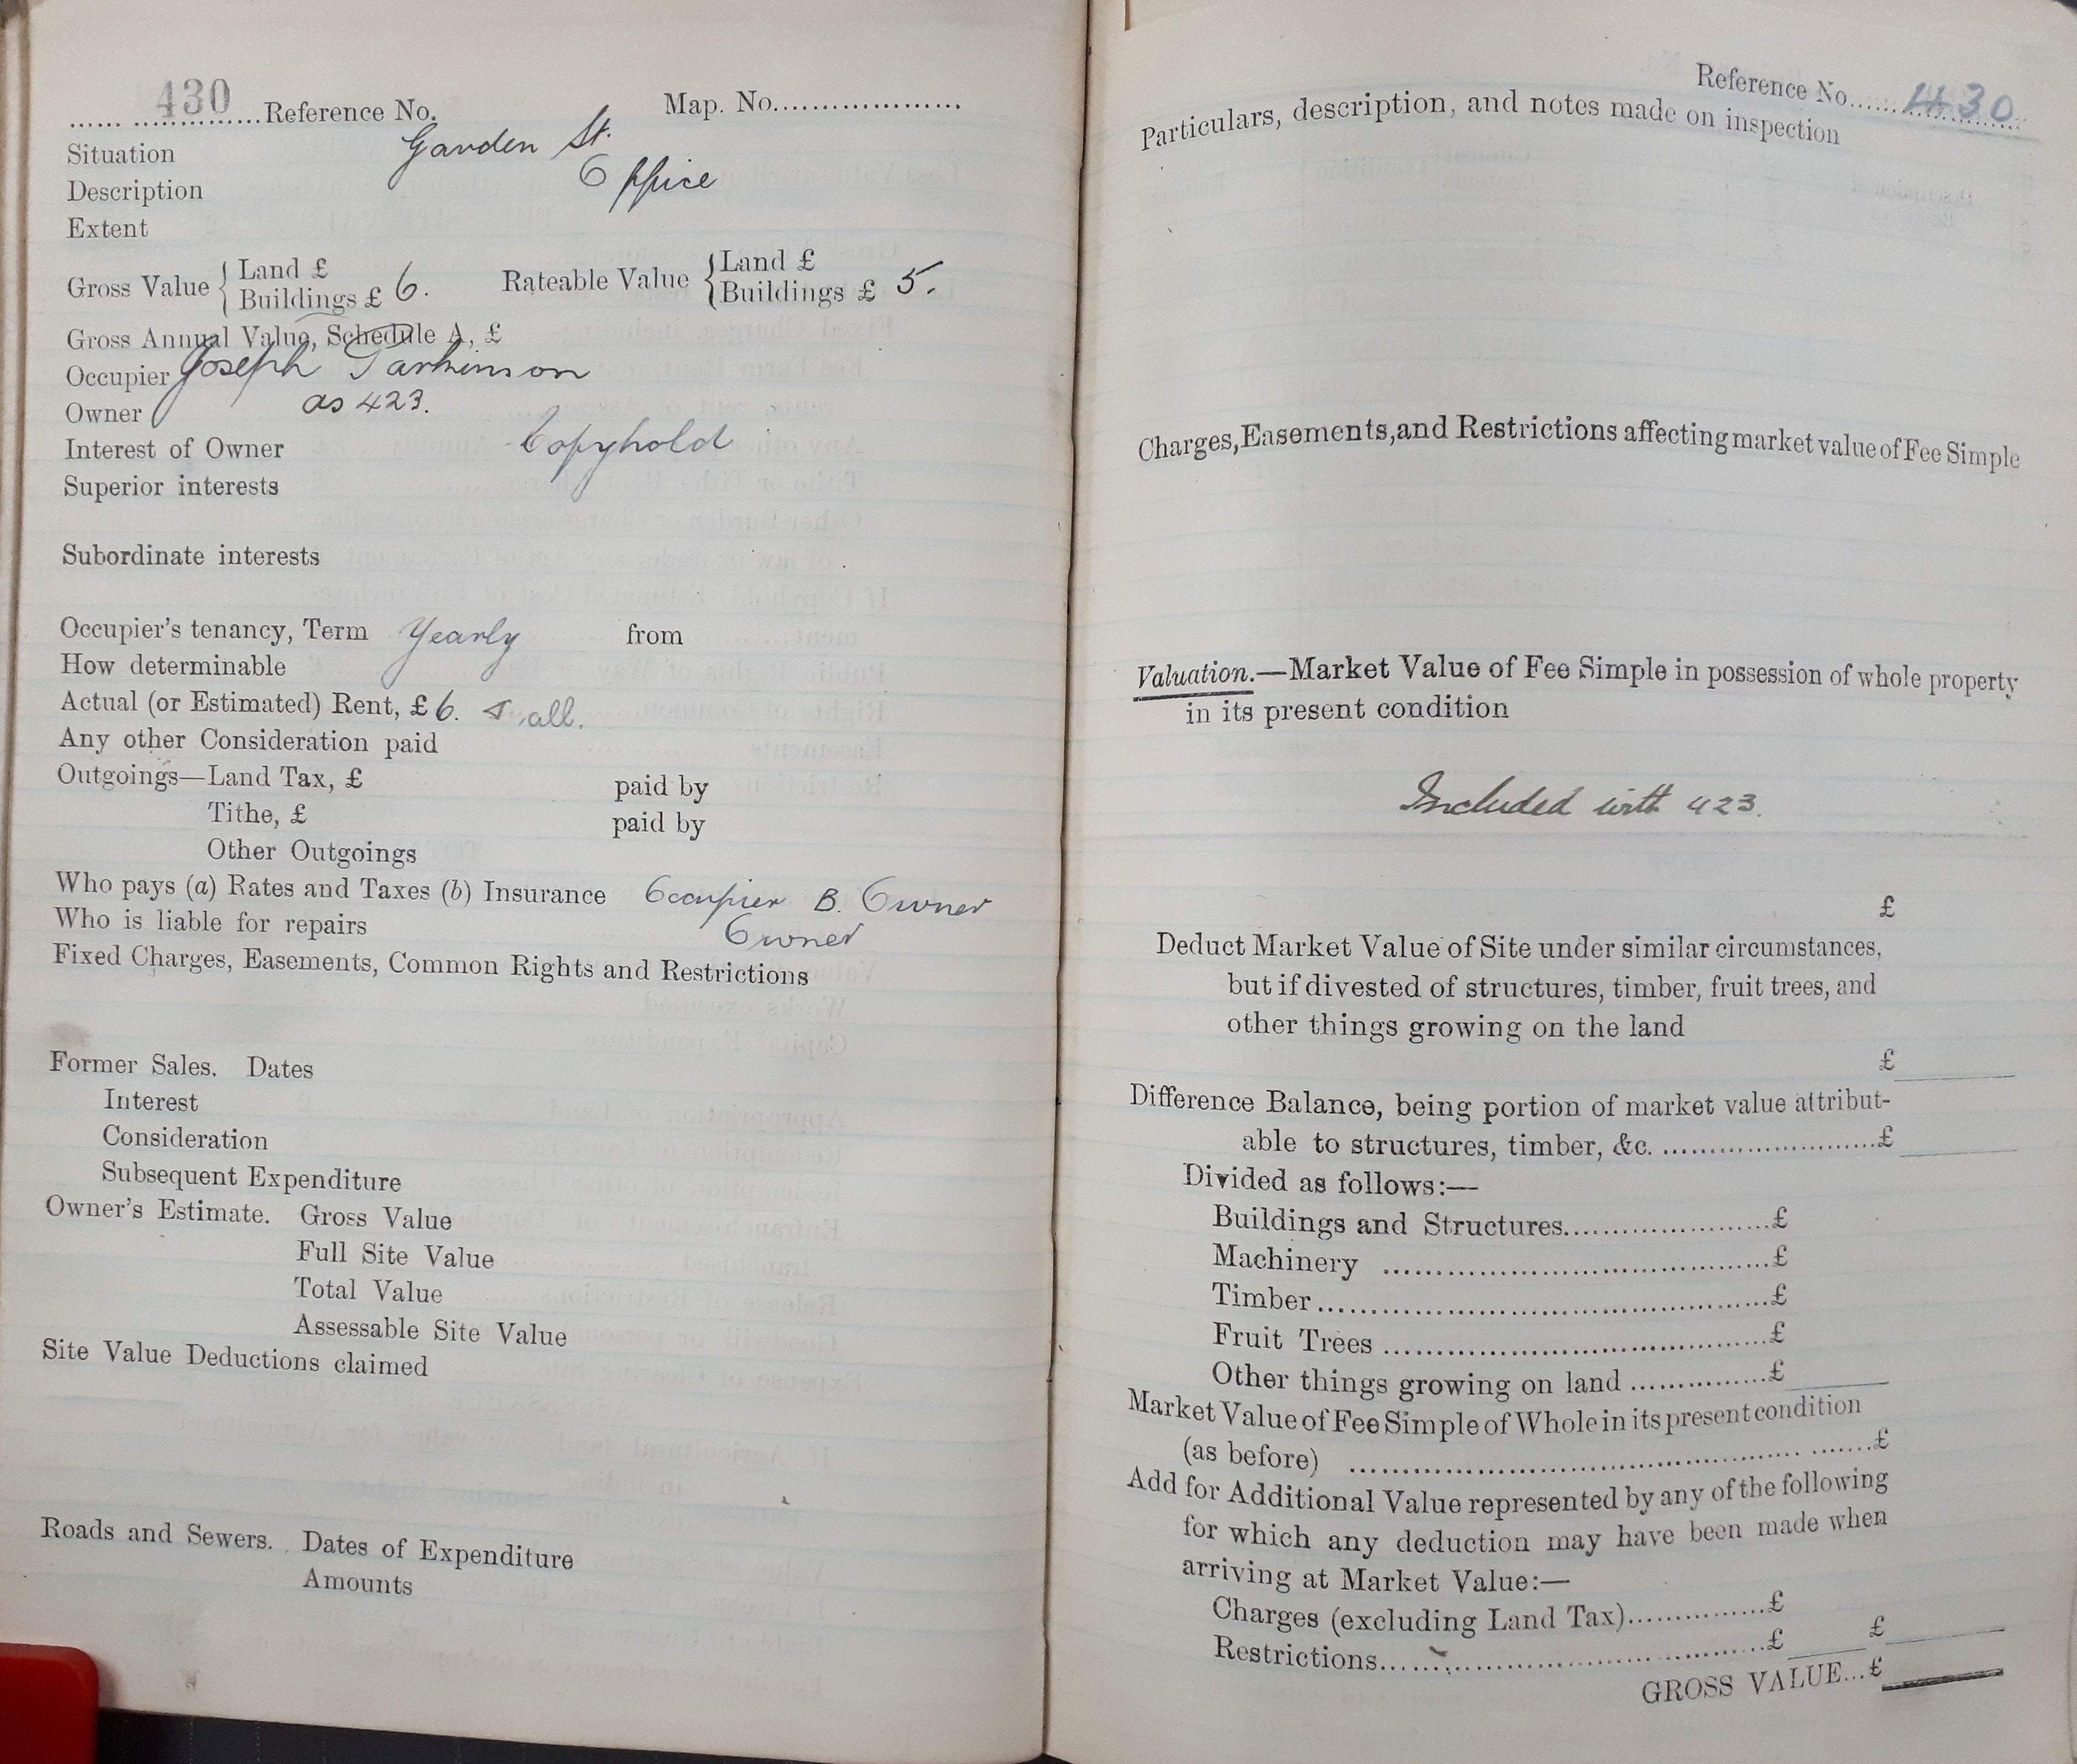 430 Reference No. Map. No.
Situation Garden St.
Description Office
Extent
Gross Value { Land £
Buildings £ 6. Rateable Value { Land £
Buildings £ 5.
Gross Annual Value, Schedule A, £
Occupier Joseph Parkinson
Owner as 423.
Interest of Owner Copyhold
Superior interests
Subordinate interests
Occupier's tenancy, Term Yearly from
How determinable
Actual (or Estimated) Rent, £ 6. all.
Any other Consideration paid
Outgoings—Land Tax, £ paid by
Tithe, £ paid by
Other Outgoings
Who pays (a) Rates and Taxes (b) Insurance Occupier B. Owner
Who is liable for repairs Owner
Fixed Charges, Easements, Common Rights and Restrictions
Former Sales. Dates
Interest
Consideration
Subsequent Expenditure
Owner's Estimate. Gross Value
Full Site Value
Total Value
Assessable Site Value
Site Value Deductions claimed
Roads and Sewers. Dates of Expenditure
Amounts
Reference No. 430
Particulars, description, and notes made on inspection
Charges, Easements, and Restrictions affecting market value of Fee Simple
Valuation.—Market Value of Fee Simple in possession of whole property
in its present condition
Included with 423.
£
Deduct Market Value of Site under similar circumstances,
but if divested of structures, timber, fruit trees, and
other things growing on the land
£
Difference Balance, being portion of market value attribut-
able to structures, timber, &c. £
Divided as follows:—
Buildings and Structures £
Machinery £
Timber £
Fruit Trees £
Other things growing on land £
Market Value of Fee Simple of Whole in its present condition
(as before) £
Add for Additional Value represented by any of the following
for which any deduction may have been made when
arriving at Market Value:—
Charges (excluding Land Tax) £
Restrictions £ £
GROSS VALUE... £